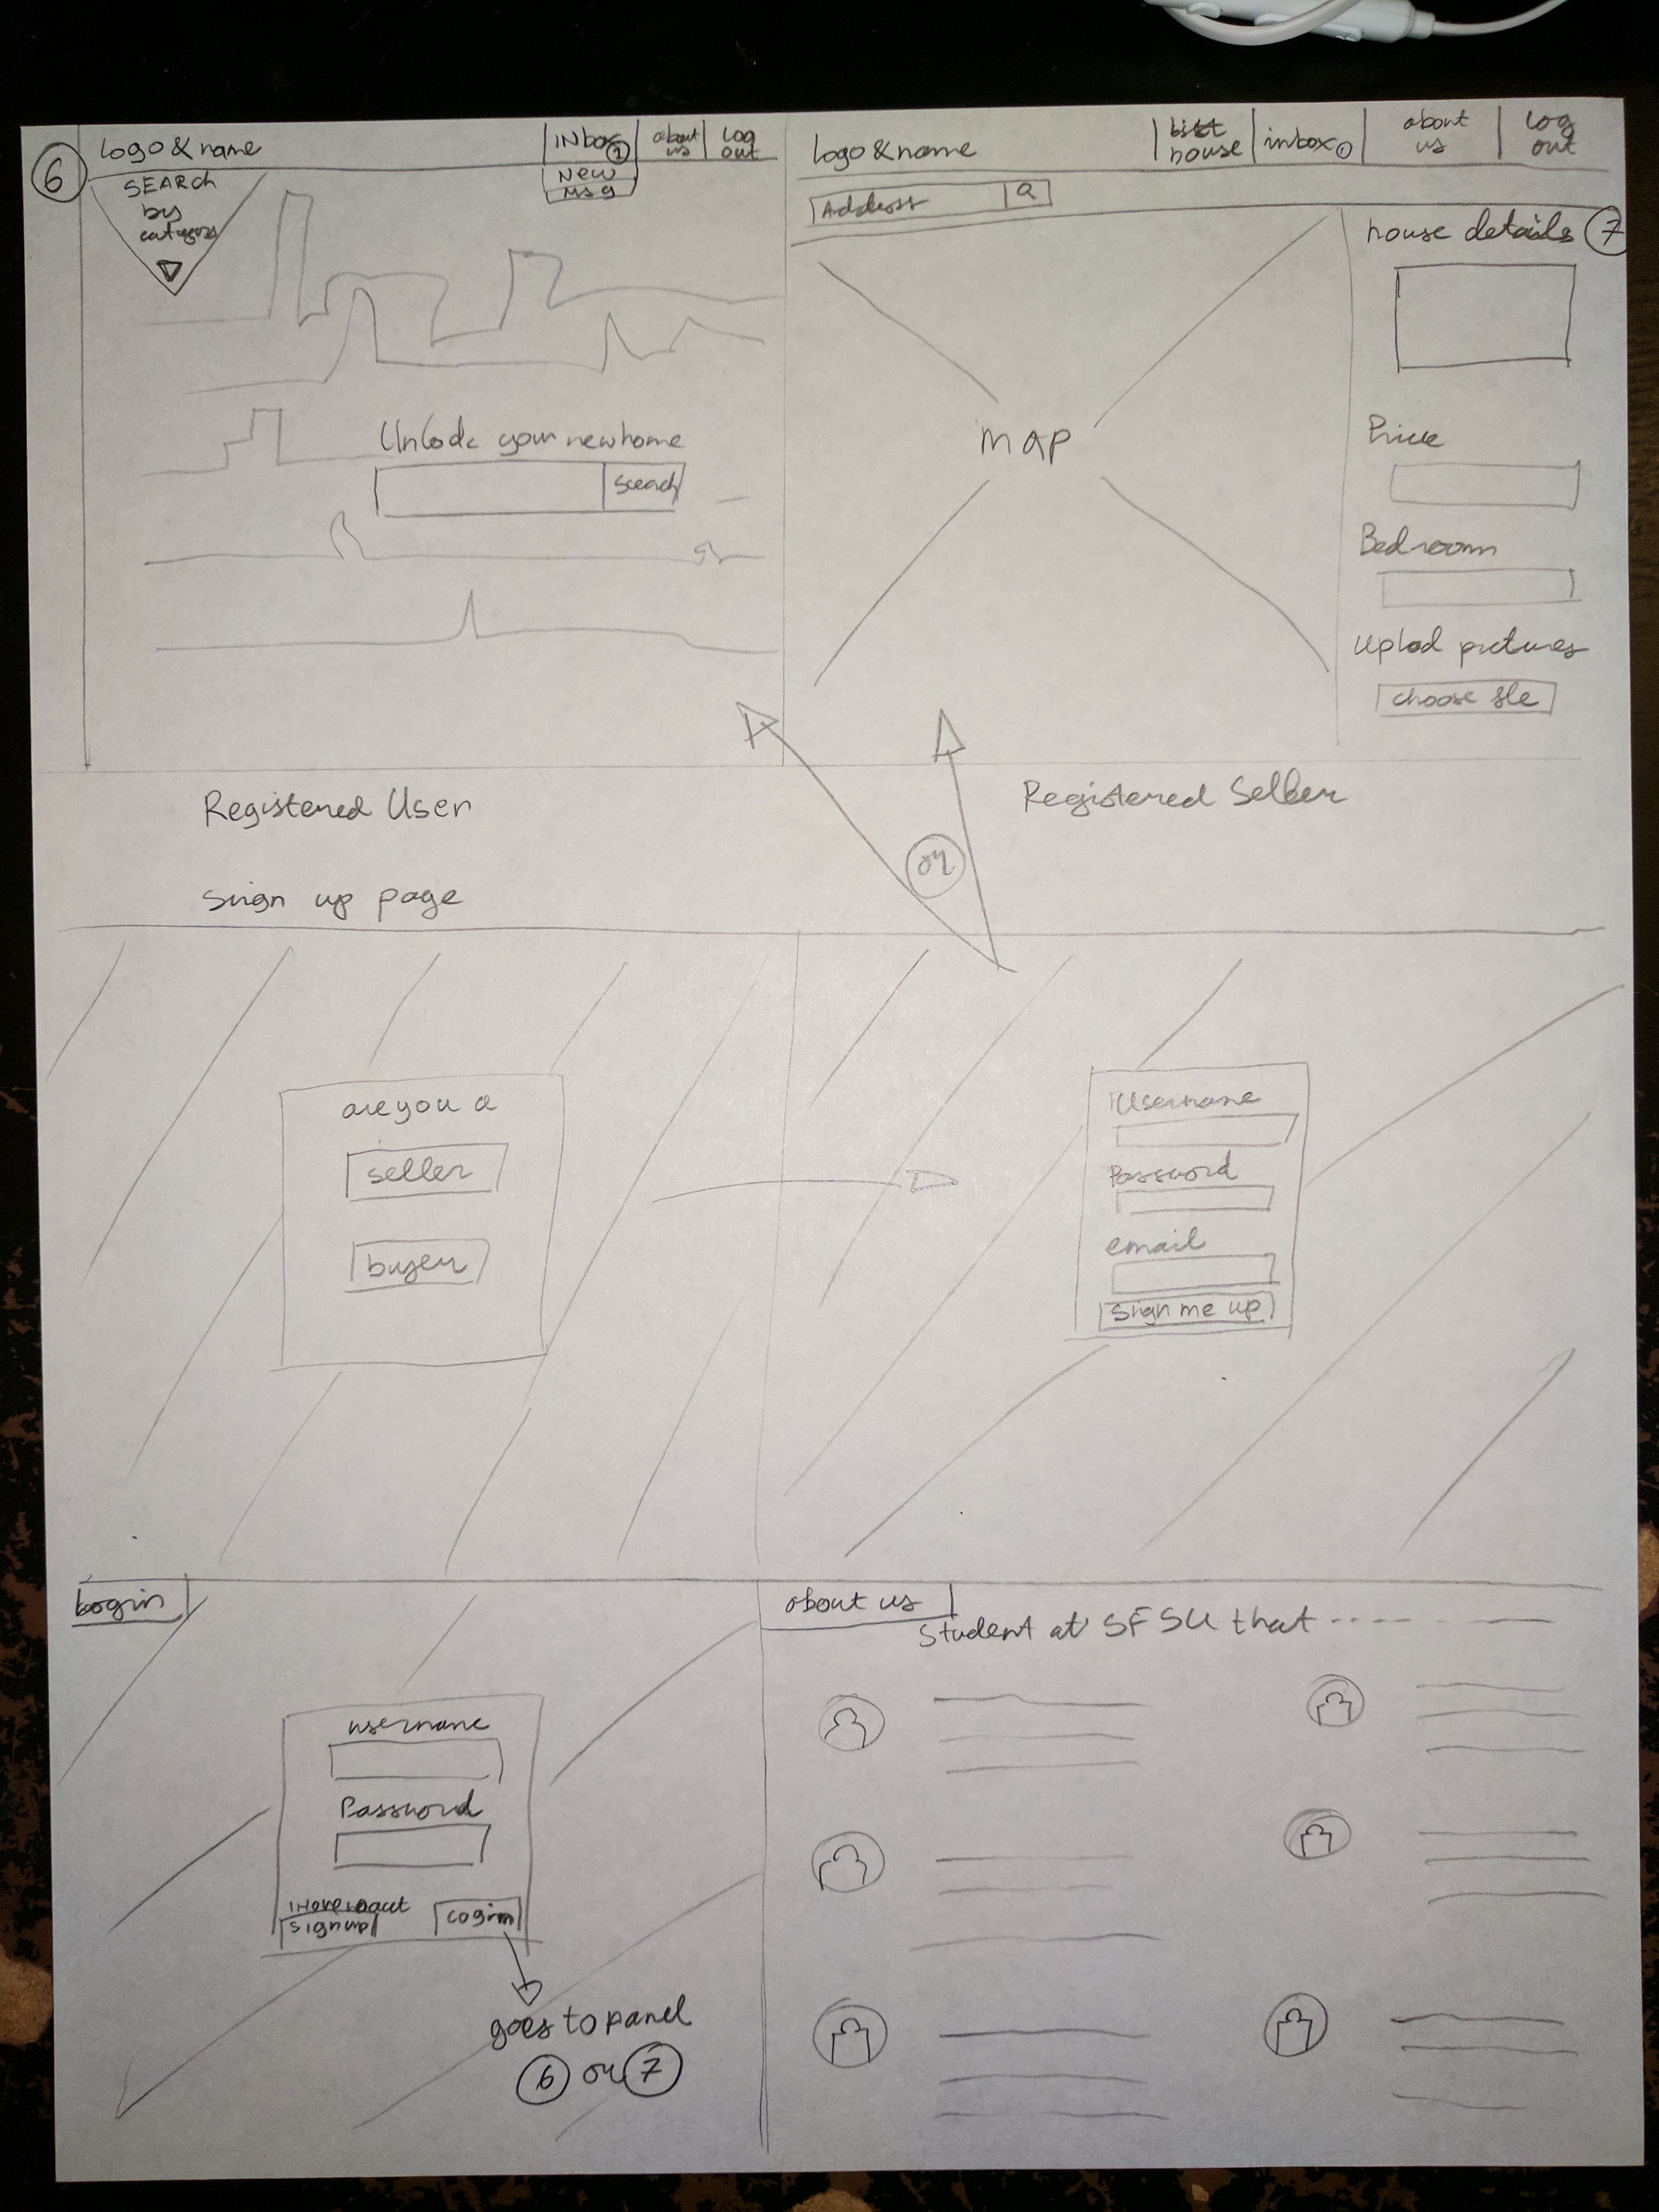 6
logo & name
INbox 1
about us
Log out
New Msg
SEARCH
by
category
Unlock your new home
Search
logo & name
list house
inbox 1
about us
log out
Address
Q
house details 7
map
Price
Bedroom
Uplod pictures
choose file
Registered User
Registered Seller
or
Sign up page
are you a
seller
buyer
Username
Password
email
Sign me up
Login
username
Password
sign up
Login
goes to panel
6 or 7
about us
Student at SFSU that ----